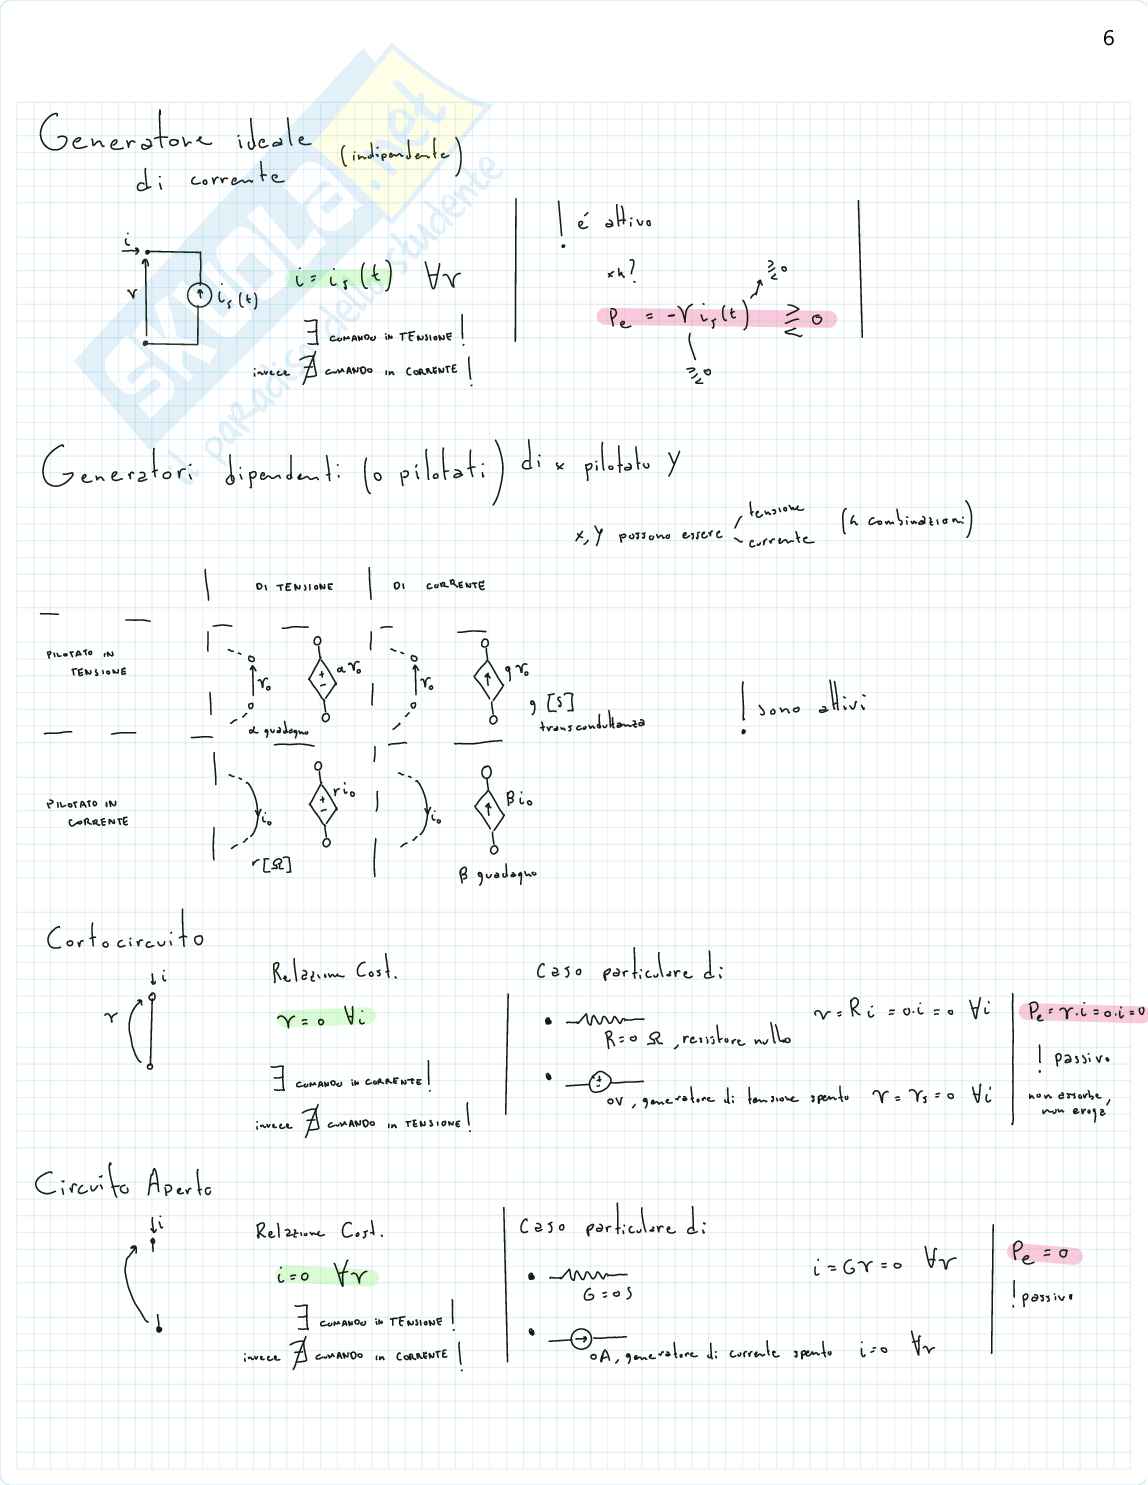 6
SKUOLA.net
il paradiso dello studente
Generatore ideale (indipendente)
di corrente
i
v
i_s(t)
i = i_s(t) ∀v
∃ COMANDO IN TENSIONE!
invece ∄ COMANDO IN CORRENTE!
! é attivo
xk?
P_e = -v i_s(t) ≷ 0
≷0
≷0
Generatori dipendenti (o pilotati) di x pilotato y
x, y possono essere tensione corrente (4 combinazioni)
DI TENSIONE
DI CORRENTE
PILOTATO IN TENSIONE
v₀
+ -
αv₀
α guadagno
v₀
gv₀
g [S]
transconduttanza
! sono attivi
PILOTATO IN CORRENTE
i₀
+ -
ri₀
r[Ω]
i₀
Bi₀
β guadagno
Cortocircuito
i
v
Relazione Cost.
v=0 ∀i
∃ COMANDO IN CORRENTE!
invece ∄ COMANDO IN TENSIONE!
Caso particolare di
• R=0 Ω, resistore nullo v=Ri=0·i=0 ∀i
• 0V, generatore di tensione spento v=v_s=0 ∀i
P_e=v·i=0·i=0
! passivo
non assorbe,
non eroga
Circuito Aperto
i
Relazione Cost.
i=0 ∀v
∃ COMANDO IN TENSIONE!
invece ∄ COMANDO IN CORRENTE!
Caso particolare di
• G=0 S i=Gv=0 ∀v
• 0A, generatore di corrente spento i=0 ∀v
P_e=0
! passivo